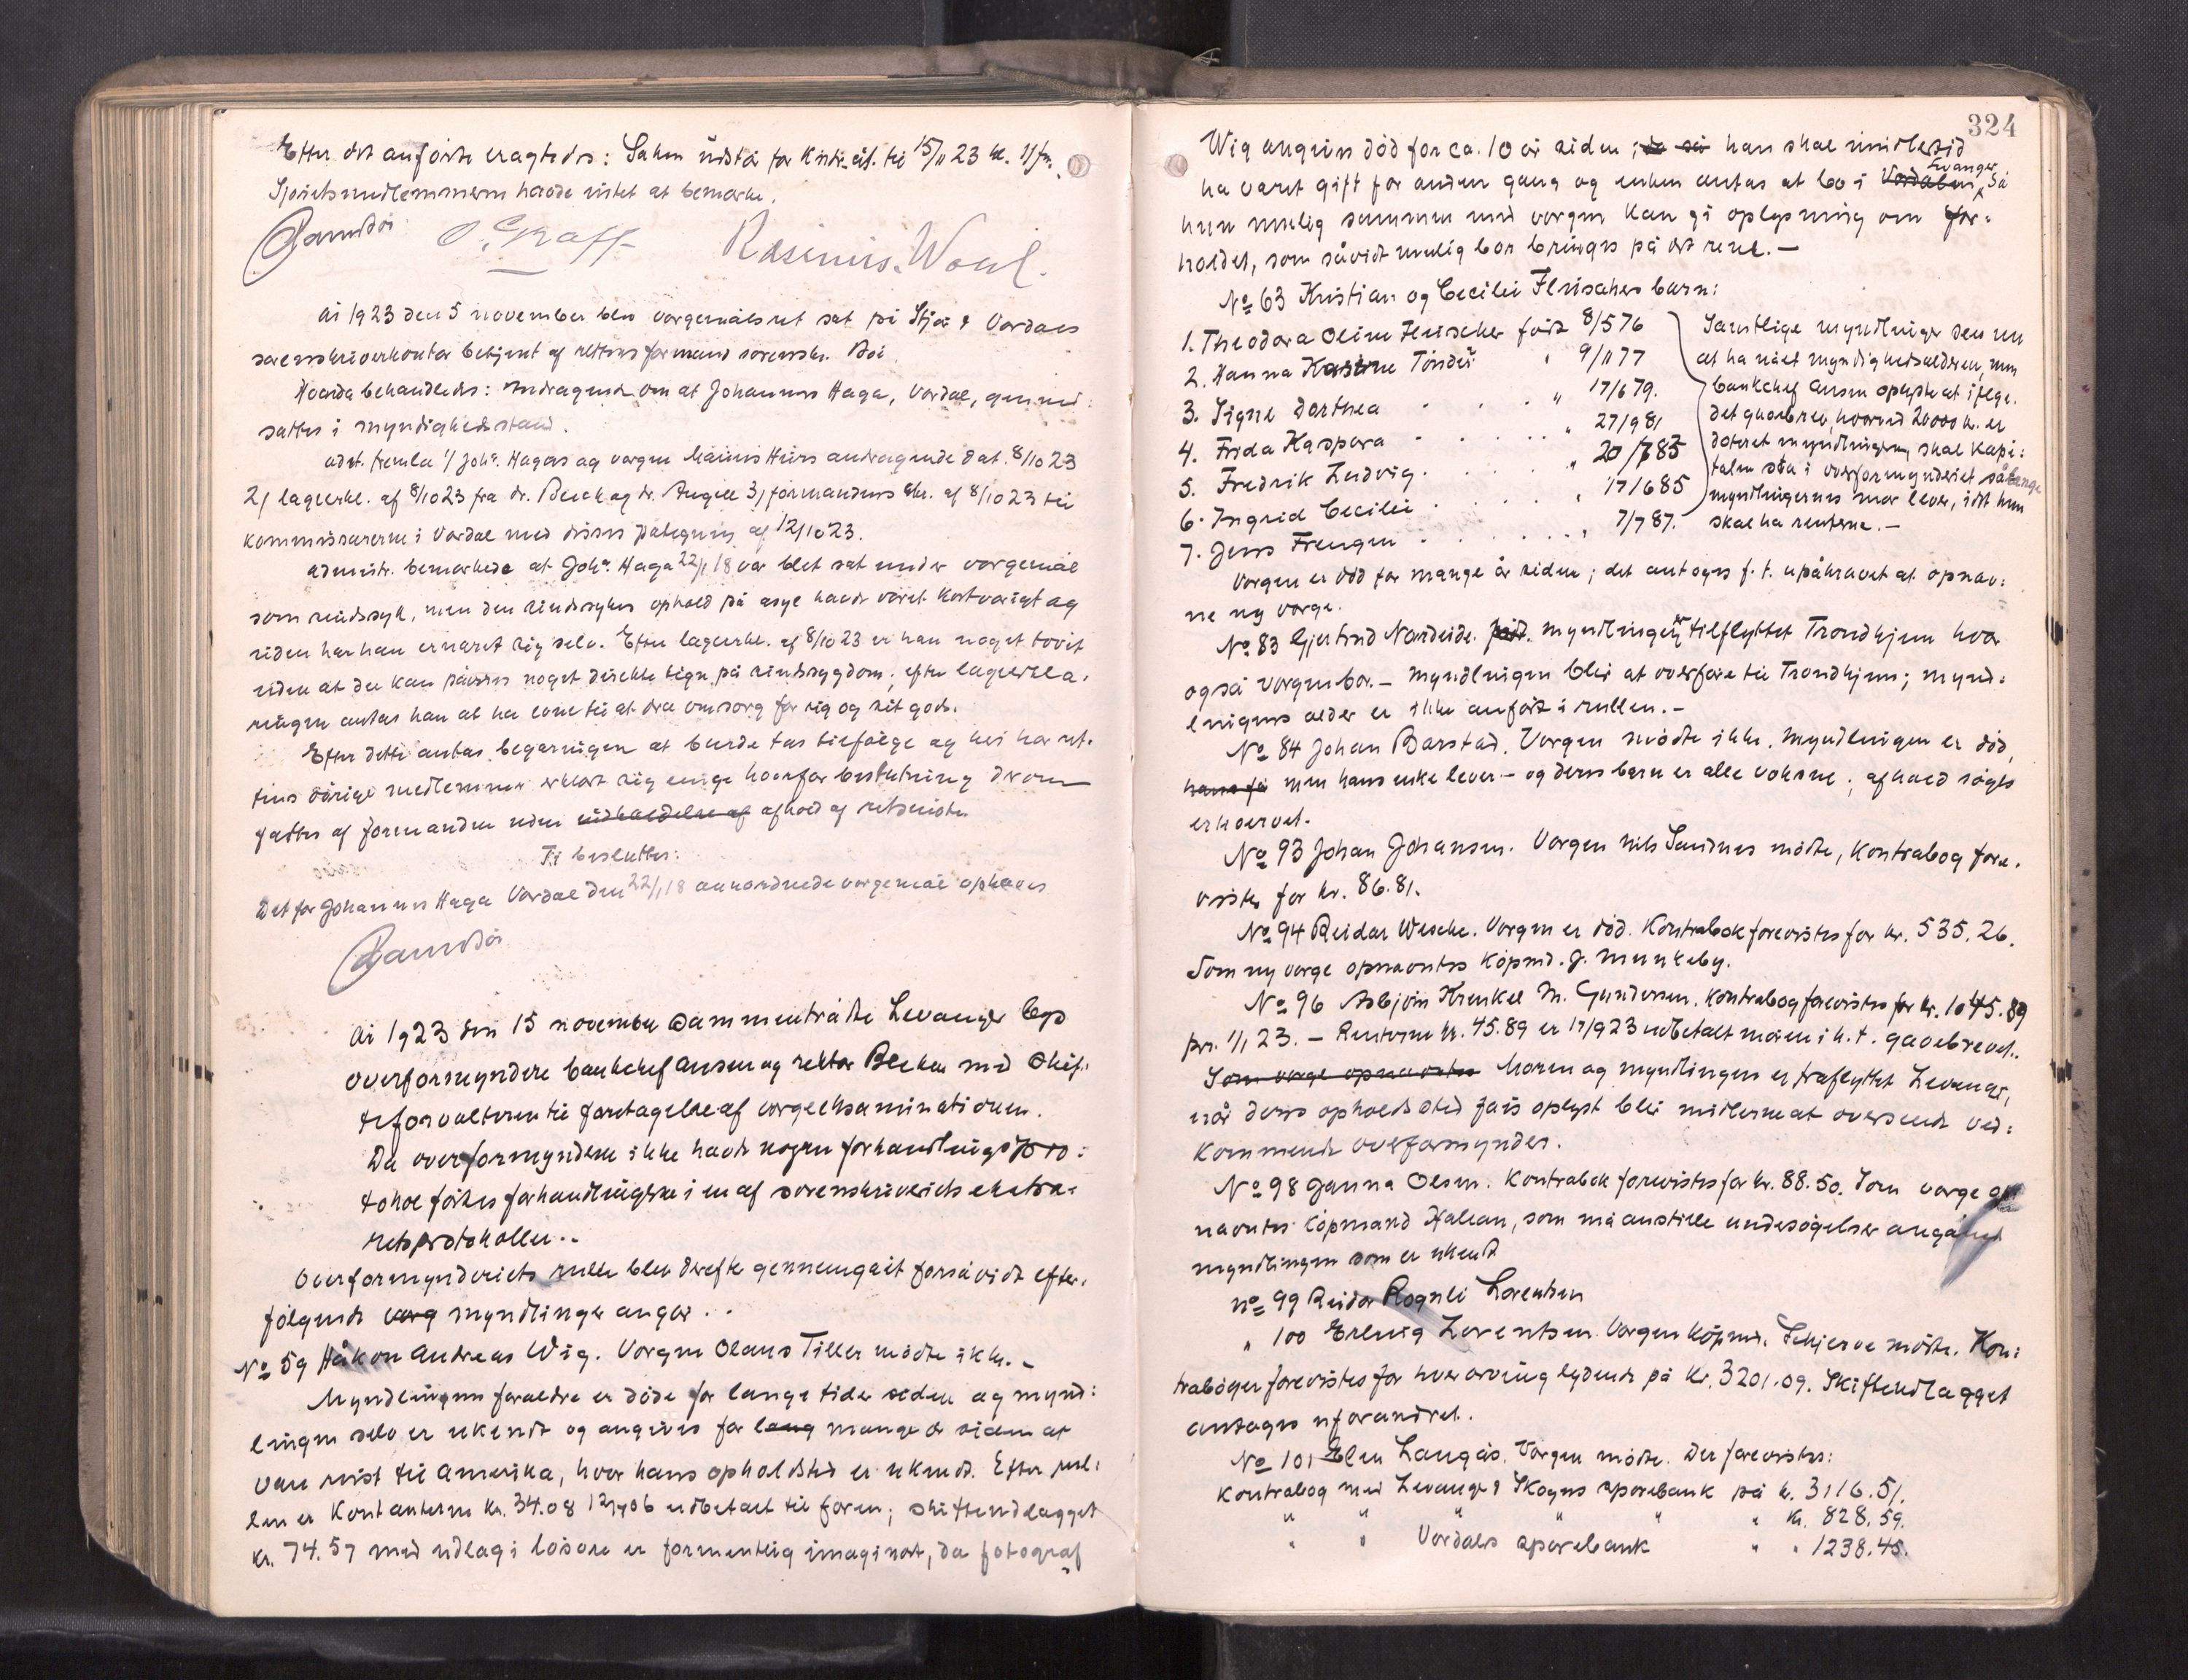 Efter det anførte eragtedes: Saken utstår for Kristi. til 15/11 23 kl. 11 fm.
medlemmerne havde intet at bemerke.
O. Graff Rasmus Woul.
År 1923 den 5 november blev vergemålsret sat på Stjør & Værdals
sorenskriverkontor betjent af rettens formand sorenskr. Bøe.
Hvorda behandledes: Andragende om at Johannes Haga, Værdal, gjenind-
sættes i myndighedsstand.
Adst. fremla 1/ Johs. Hagas og vergen andragende dat. 8/10 23
2/ lægeerkl. af 8/10 23 fra dr. og dr. 3/ formandens skr. af 8/10 23 til
kommissærerne i Værdal med disses påtegning af 12/10 23.
Administr. bemerkede at Johs. Haga 22/1 18 var blet sat under vergemål
som sindssyk, men den sindssykes ophold på asyl havde været kortvarigt og
siden har han ernæret sig selv. Efter lægeerkl. af 8/10 23 er han noget
uden at der kan påvises noget direkte tegn på sindssygdom; efter lægeerklæ-
ringen antas han at ha evne til at dra omsorg for sig og sit gods.
Efter dette antas begjæringen at burde tas tilfølge og har ret-
tens øvrige medlemmer erklært sig enige hvorfor beslutning derom
fattes af formanden uden afhold af retsmøte.
Ti besluttes:
Det for Johannes Haga Værdal den 22/1 18 anordnede vergemål ophæves
År 1923 den 15 november sammentrådte Levanger bys
overformyndere bankchef Ansen og rektor med skif-
teforvalteren til foretagelse af vergeeksaminationen.
Da overformynderne ikke havde nogen forhandlingspro-
tokol førtes forhandlingerne i en af sorenskriveriets ekstra-
retsprotokoller.
Overformynderiets rulle blev derefter gennemgått forsåvidt efter-
følgende verg myndlinger angår.
No 59 Håkon Andreas Wig. Vergen Olaus Tiller mødte ikke. -
Myndlingens forældre er døde for lange tider siden og mynd-
lingen selv er ukendt og angives for lang mange år siden at
være reist til Amerika, hvor hans opholdsted er ukendt. Efter rul-
len er Kontanterne kr. 34.08 12/7 06 utbetalt til faren; skifteudlægget
kr. 74.57 med udlæg i løsøre er formentlig imaginært, da fotograf
324
Wig angives død for ca. 10 år siden; da så han skal imidlertid
ha været gift for anden gang og enken antas at bo i Værdalen, Levanger så
hun mulig sammen med vergen kan gi oplysning om for-
holdet, som såvidt mulig bør bringes på det rene. -
No 63 Kristian og Cecilie Fleischers barn:
1. Theodora Oline Fleischer født 8/5 76
2. Hanna Kastine Tønder " 9/11 77
3. Signe Dorthea " 17/6 79.
4. Frida Kaspara " 27/9 81
5. Fredrik Ludvig. " 20/7 83
6. Ingrid Cecilie " 17/6 85
7. Jens Frengen " 7/7 87.
Samtlige myndlinger sees nu
at ha nået myndighedsalderen, men
bankchef Ansen oplyste at ifølge
det gavebrev, hvorved 20000 kr. er
doteret myndlingerne, skal kapi-
talen stå i overformynderiet sålenge
myndlingernes mor lever, idet hun
skal ha renterne. -
Vergen er død for mange år siden; det antages f. t. upåkrævet at opnæv-
ne ny verge.
No 83 Gjertrud Nordeide. Myndlingen er tilflyttet Trondhjem hvor
også vergen bor. - Myndlingen blir at overføre til Trondhjem; mynd-
lingens alder er ikke anført i rullen. -
No 84 Johan Barstad. Vergen mødte ikke. Myndlingen er død,
hans få men hans enke lever - og deres barn er alle voksne; afhold søges
erhvervet.
No 93 Johan Johansen. Vergen Nils Sandnes mødte, Kontrabog fore-
vistes for kr. 86.81.
No 94 Reidar Wesche. Vergen er død. Kontrabok forevistes for kr. 535.26.
Som ny verge opnævntes kjøpmd. J. Munkeby.
No 96 Asbjørn Krenkel M. Gundersen. Kontrabog forevistes for kr. 1045.89
pr. 1/1 23. - Renterne kr. 45.89 er 17/9 23 udbetalt moren i h. t. gavebrevet.
Som verge opnævntes Moren og myndlingen er fraflyttet Levanger,
når deres opholdssted fås oplyst blir midlerne at oversende ved-
kommende overformynder.
No 98 Janna Olsen. Kontrabok forevistes for kr. 88.50. Som verge op
nævntes kjøpmand Hallan, som må anstille undersøgelser angående
myndlingen som er ukendt
No 99 Reidar Rognli Lorentsen
" 100 Erling Lorentsen. Vergen kjøpmd. Schjerve mødte. Kon-
trabøger forevistes for hver arving lydende på kr. 3201.09. Skifteudlægget
antages uforandret.
No 101 Elen Langås. Vergen mødte. Der forevistes:
Kontrabog med Levanger & Skogns sparebank på kr. 3116.51.
" " " " " " kr. 828.59.
" " Værdals sparebank " " 1238.45.